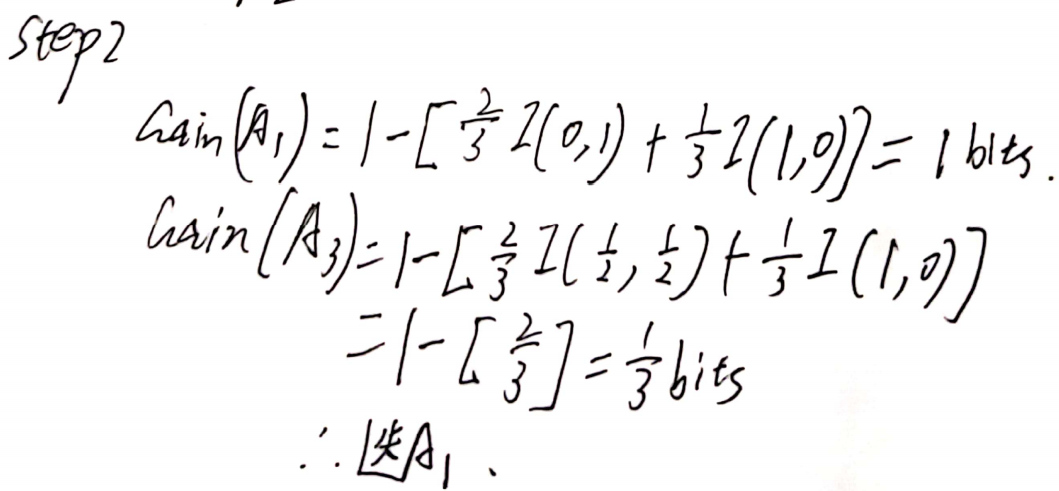 Step2
Gain(A₁) = 1 - [2/3 I(0,1) + 1/3 I(1,0)] = 1 bits.
Gain(A₃) = 1 - [2/3 I(1/2, 1/2) + 1/3 I(1,0)]
= 1 - [2/3] = 1/3 bits
∴ 选A₁.